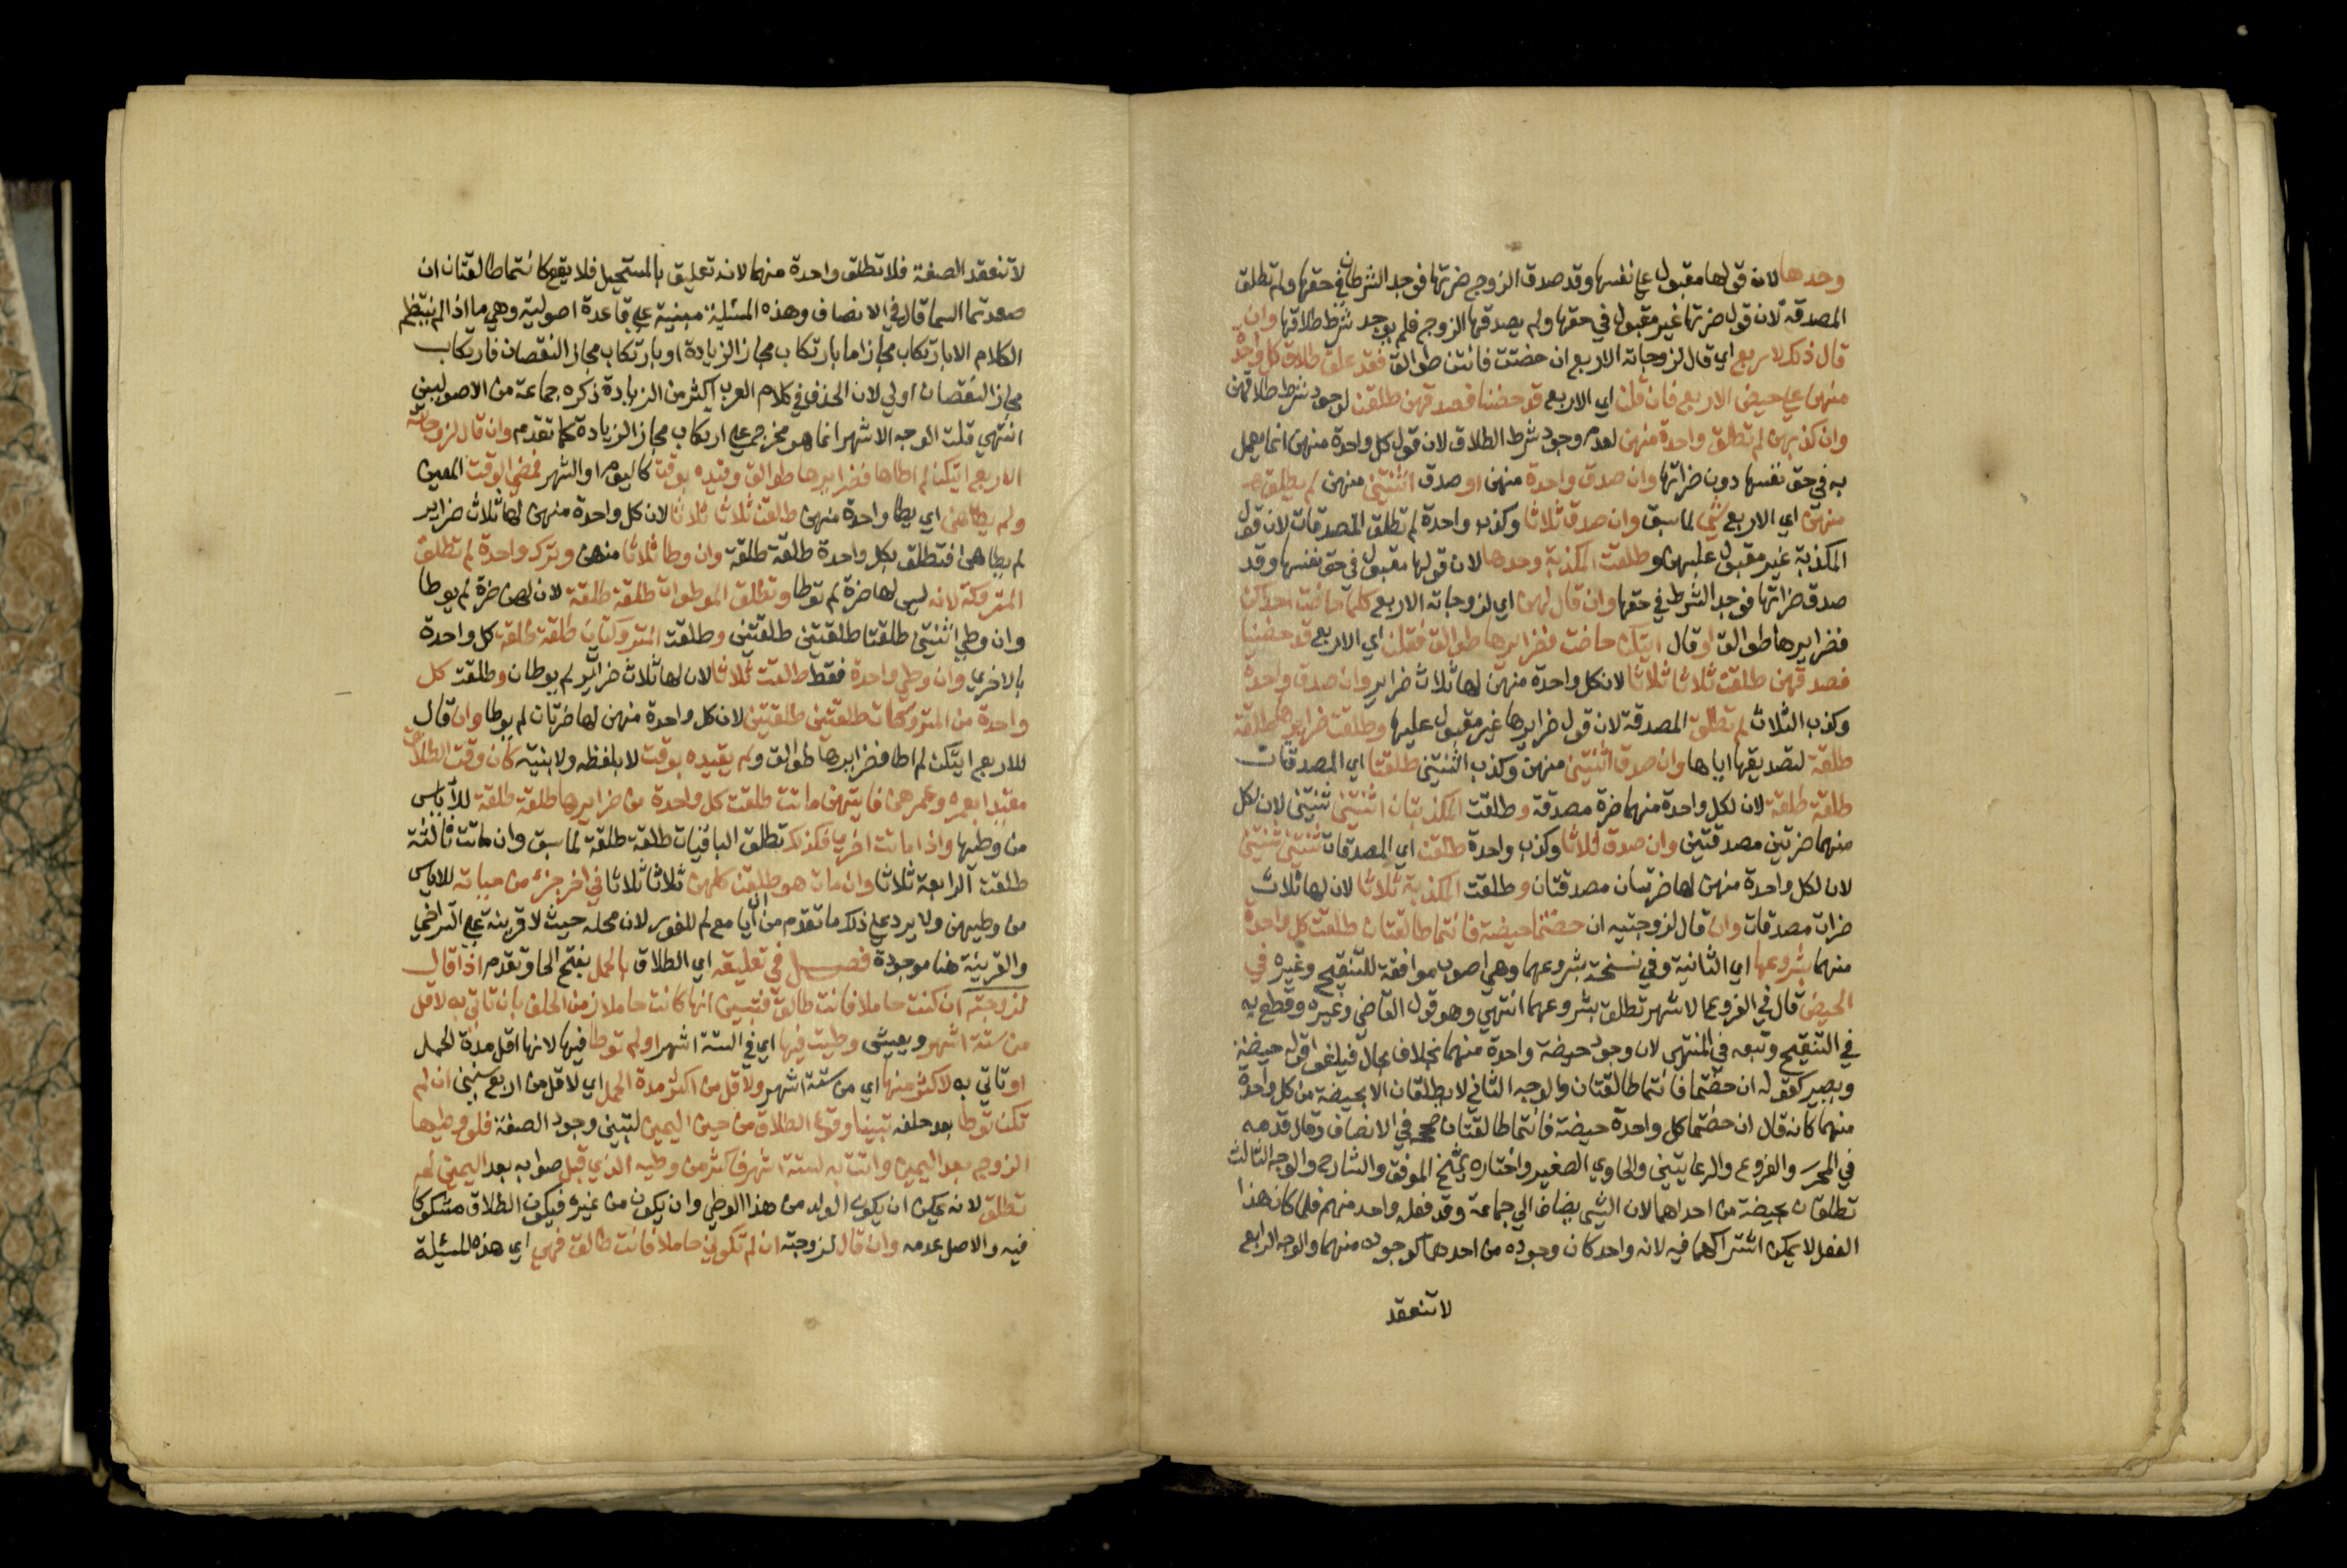 وحدها لان قولها مقبول علي نفسها وقد صدق الزوج ضرتها فوجد الشرطان في حقها ولم تطلق
المصدقة لان قول ضرتها غير مقبول في حقها ولم يصدقها الزوج فلم يوجد شرط طلاقها وان
قال ذلك لاربع اي قال لزوجاته الاربع ان حضتن فانتن طوالق فقد علق طلاق كل واحدة
منهن علي حيض الاربع فان قلن اي الاربع قد حضنا فصدقهن طلقن لوجود شرط طلاقهن
وان كذبهن لم تطلق واحدة منهن لعدم وجود شرط الطلاق لان قول كل واحدة منهن انما يعمل
به في حق نفسها دون ضراتها وان صدق واحدة منهن او صدق اثنتين منهن لم يطلق
منهن اي الاربع شي لما سبق وان صدق ثلاثا وكذب واحدة لم تطلق المصدقات لان قول
المكذبة غير مقبول عليهن وطلقت المكذبة وحدها لان قولها مقبول في حق نفسها وقد
صدق ضراتها فوجد الشرط في حقها وان قال لهن اي لزوجاته الاربع كلما حاضت احداكن
فضرايرها طوالق او قال ايتكن حاضت فضرايرها طوالق فقلن اي الاربع قد حضنا
فصدقهن طلقن ثلاثا ثلاثا لان كل واحدة منهن لها ثلاث ضراير وان صدق واحدة
وكذب الثلاث لم تطلق المصدقة لان قول ضرايرها غير مقبول عليها وطلقت ضرايرها طلقة
طلقة لتصديقها اياها وان صدق اثنتين منهن وكذب اثنتين طلقتا اي المصدقتان
طلقة طلقة لان لكل واحدة منهما ضرة مصدقة وطلقت المكذبتان اثنتين ثنتين لان لكل
منهما ضرتين مصدقتين وان صدق ثلاثا وكذب واحدة طلقن اي المصدقات ثنتين ثنتين
لان لكل واحدة منهن لها ضرتان مصدقتان وطلقت المكذبة ثلاثا لان لها ثلاث
ضرات مصدقات وان قال لزوجتيه ان حضتما حيضة فانتما طالقتان طلقت كل واحدة
منهما بشروعها اي الثانية وفي نسخة بشروعهما وهي اصوب موافقة للتنقيح وغيره في
الحيض قال في الفروع والاشهر تطلق بشروعهما انتهي وهو قول القاضي وغيره وقطع به
في التنقيح وتبعه في المنتهي لان وجود حيضة واحدة منهما بخلاف محال فيلغوا قوله حيضة
ويصير كقوله ان حضتما فانتما طالقتان والوجه الثاني لا يطلقان الا بحيضة من كل واحدة
منهما كانه قال ان حضتما كل واحدة حيضة فانتما طالقتان صححه في الانصاف وقال قدمه
في المحرر والفروع والرعايتين والحاوي الصغير واختاره الشيخ الموفق والشارح والوجه الثالث
تطلقان بحيضة من احداهما لان الشي يضاف الي جماعة وقد فعله واحد منهم فلما كان هذا
الفعل لا يمكن اشتراكهما فيه لانه واحد كان وجوده من احدهما كوجوده منهما والوجه الرابع
لا تنعقد
لا تنعقد الصفة فلا تطلق واحدة منهما لانه تعليق بالمستحيل فلا يقع كانتما طالقتان ان
صعدتما السما قال في الانصاف وهذه المسئلة مبنية علي قاعدة اصولية وهي ما اذا لم ينتظم
الكلام الا بارتكاب مجاز اما بارتكاب مجاز الزيادة او بارتكاب مجاز النقصان فارتكاب
مجاز النقصان اولي لان الحذف في كلام العرب اكثر من الزيادة ذكره جماعة من الاصوليين
انتهي قلت الوجه الاشهر انما هو مخرج علي ارتكاب مجاز الزيادة كما تقدم وان قال لزوجاته
الاربع ايتكن لم اطاها فضرايرها طوالق وقيده بوقت كاليوم او الشهر فمضي الوقت المعين
ولم يطاهن اي يطا واحدة منهن طلقن ثلاثا ثلاثا لان كل واحدة منهن لها ثلاث ضراير
لم يطاهن فتطلق بكل واحدة طلقة طلقة وان وطا ثلاثا منهن وترك واحدة لم تطلق
المتروكة لانه ليس لها ضرة لم توطا وتطلق الموطوات طلقة طلقة لان لهن ضرة لم يوطا
وان وطي اثنتين طلقتا طلقتين طلقتين وطلقت المتروكتان طلقة طلقة كل واحدة
بالاخري وان وطي واحدة فقط طلقت ثلاثا لان لها ثلاث ضراير لم يوطان وطلقت كل
واحدة من المتروكات طلقتين طلقتين لان كل واحدة منهن لها ضرتان لم يوطا وان قال
للاربع ايتكن لم اطا فضرايرها طوالق ولم يقيده بوقت لا بلفظه ولا بنية كان وقت الطلاق
مقيدا بعمره وعمرهن فايتهن ماتت طلقت كل واحدة من ضرايرها طلقة طلقة للاياس
من وطيها واذا ماتت اخري فكذلك تطلق الباقيات طلقة طلقة لما سبق وان ماتت ثالثة
طلقت الرابعة ثلاثا وان مات هو طلقن كلهن ثلاثا ثلاثا في اخر جزء من حياته للاياس
من وطيهن ولا يرد علي ذلك ما تقدم من ان ايا مع لم للفور لان محله حيث لا قرينة علي التراخي
والقرينة هنا موجودة فصل في تعليقه اي الطلاق بالحمل بفتح الحا وتقدم اذا قال
لزوجته ان كنت حاملا فانت طالق فتبين انها كانت حاملا زمن الحلف بان تاتي به لاقل
من ستة اشهر ويعيش وطيت فيها اي في الستة اشهر او لم توطا فيها لانها اقل مدة الحمل
او تاتي به لاكثر منها اي من ستة اشهر ولاقل من اكثر مدة الحمل اي لاقل من اربع سنين ان لم
تكن توطا بعد حلفه تبينا وقوع الطلاق من حين اليمين لتبين وجود الصفة فلو وطيها
الزوج بعد اليمين واتت به لستة اشهر فاكثر من وطيه الذي قبل صوابه بعد اليمين لم
تطلق لانه يمكن ان يكون الولد من هذا الوطي وان يكون من غيره فيكون الطلاق مشكوكا
فيه والاصل عدمه وان قال لزوجته ان لم تكوني حاملا فانت طالق فهي اي هذه المسئلة